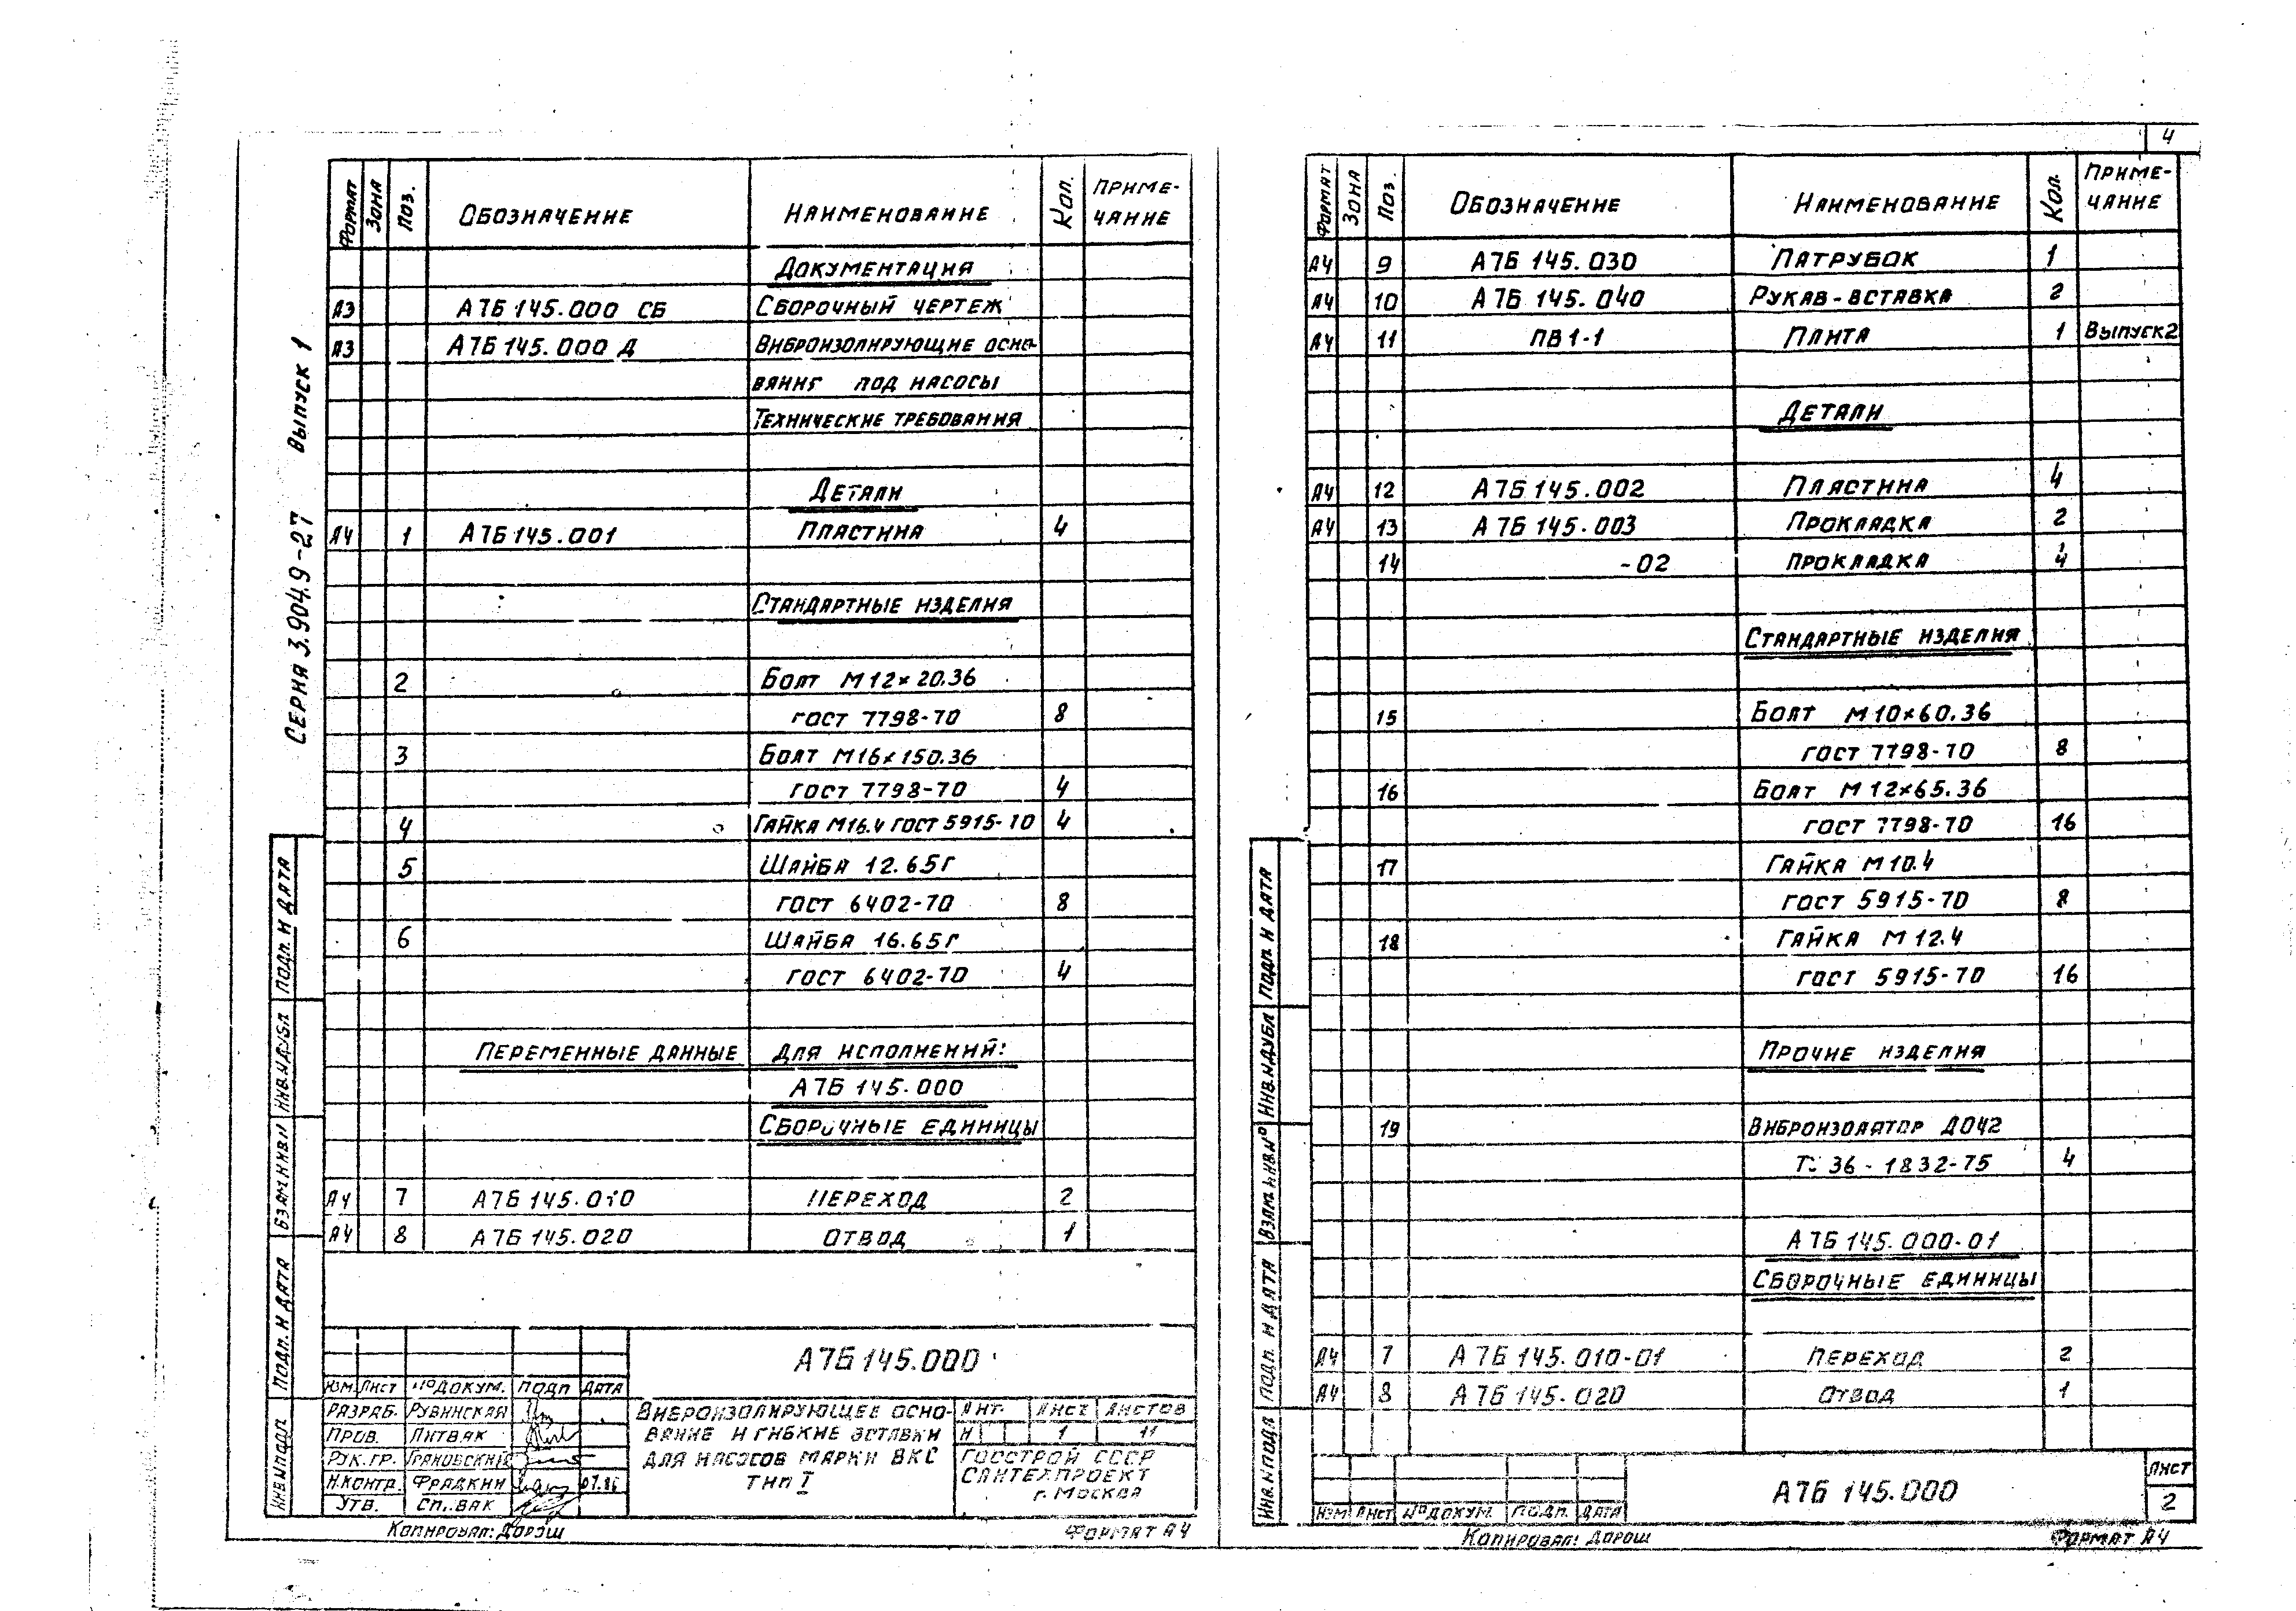 Серия 3.904.9-27 Выпуск 1
Формат Зона Поз. Обозначение Наименование Кол. Приме-
чание
Документация
А3 А7Б 145.000 СБ Сборочный чертеж
А3 А7Б 145.000 Д Виброизолирующие осно-
вания под насосы
Технические требования
Детали
А4 1 А7Б 145.001 Пластина 4
Стандартные изделия
2 Болт М12×20.36
ГОСТ 7798-70 8
3 Болт М16×150.36
ГОСТ 7798-70 4
4 Гайка М16.4 ГОСТ 5915-70 4
5 Шайба 12.65Г
ГОСТ 6402-70 8
6 Шайба 16.65Г
ГОСТ 6402-70 4
Переменные данные для исполнений:
А7Б 145.000
Сборочные единицы
А4 7 А7Б 145.010 Переход 2
А4 8 А7Б 145.020 Отвод 1
Инв.Nподл Подп. и дата Взам.инв.N Инв.Nдубл Подп. и дата
А7Б 145.000
Изм. Лист №докум. Подп Дата
Разраб. Рувинская
Пров. Литвак
Рук.гр. Грановский
Н.контр. Фрадкин 07.86
Утв. Спивак
Виброизолирующее осно-
вание и гибкие вставки
для насосов марки ВКС
тип I
Лит. Лист Листов
И 1 11
Госстрой СССР
Сантехпроект
г. Москва
Копировал: Дорош Формат А4
4
Формат Зона Поз. Обозначение Наименование Кол. Приме-
чание
А4 9 А7Б 145.030 Патрубок 1
А4 10 А7Б 145.040 Рукав-вставка 2
А4 11 ПВ1-1 Плита 1 Выпуск 2
Детали
А4 12 А7Б 145.002 Пластина 4
А4 13 А7Б 145.003 Прокладка 2
14 -02 Прокладка 4
Стандартные изделия
15 Болт М10×60.36
ГОСТ 7798-70 8
16 Болт М12×65.36
ГОСТ 7798-70 16
17 Гайка М10.4
ГОСТ 5915-70 8
18 Гайка М12.4
ГОСТ 5915-70 16
Прочие изделия
19 Виброизолятор ДО42
ТУ 36-1832-75 4
А7Б 145.000-01
Сборочные единицы
А4 7 А7Б 145.010-01 Переход 2
А4 8 А7Б 145.020 Отвод 1
Инв.Nподл Подп. и дата Взам.инв.№ Инв.Nдубл Подп. и дата
Изм Лист №докум. Подп. Дата
А7Б 145.000
Лист
2
Копировал: Дорош Формат А4